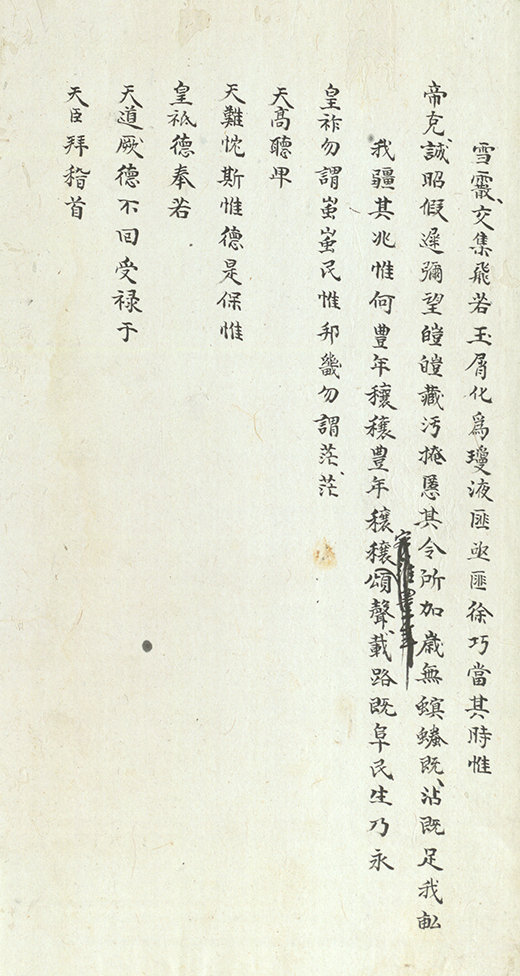 雪霰交集飛若玉屑化為瓊液匪亟匪徐巧當其時惟
帝克誠昭假遲遲彌望皚皚藏污掩慝其令所加歲無螟蟊既沾既足我畝
我疆其兆惟何豊年穰穰豊年穰穰頌聲載路既阜民生乃永
皇祚勿謂蚩蚩民惟邦畿勿謂茫茫
天高聽卑
天難忱斯惟德是保惟
皇祗德奉若
天道厥德不回受祿于
天臣拜稽首